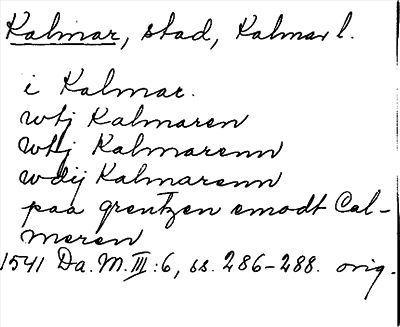 Kalmar, stad, Kalmar l.
i Kalmar.
wtj Kalmaren
wtj Kalmarenn
wdij Kalmarenn
paa grentzen emodt Cal-
meren
1541 Da. M. III:6, ss. 286-288. orig.